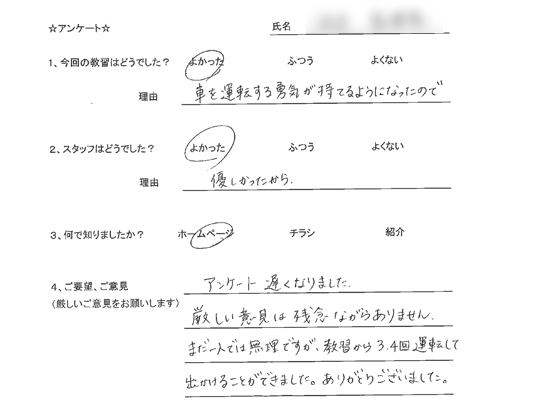 ☆アンケート☆
氏名
1、今回の教習はどうでした? よかった ふつう よくない
理由 車を運転する勇気が持てるようになったので
2、スタッフはどうでした? よかった ふつう よくない
理由 優しかったから.
3、何で知りましたか? ホームページ チラシ 紹介
4、ご要望、ご意見 アンケート 遅くなりました.
(厳しいご意見をお願いします) 厳しい意見は残念ながらありません.
まだ一人では無理ですが、教習から3.4回運転して
出かけることができました。ありがとうございました。